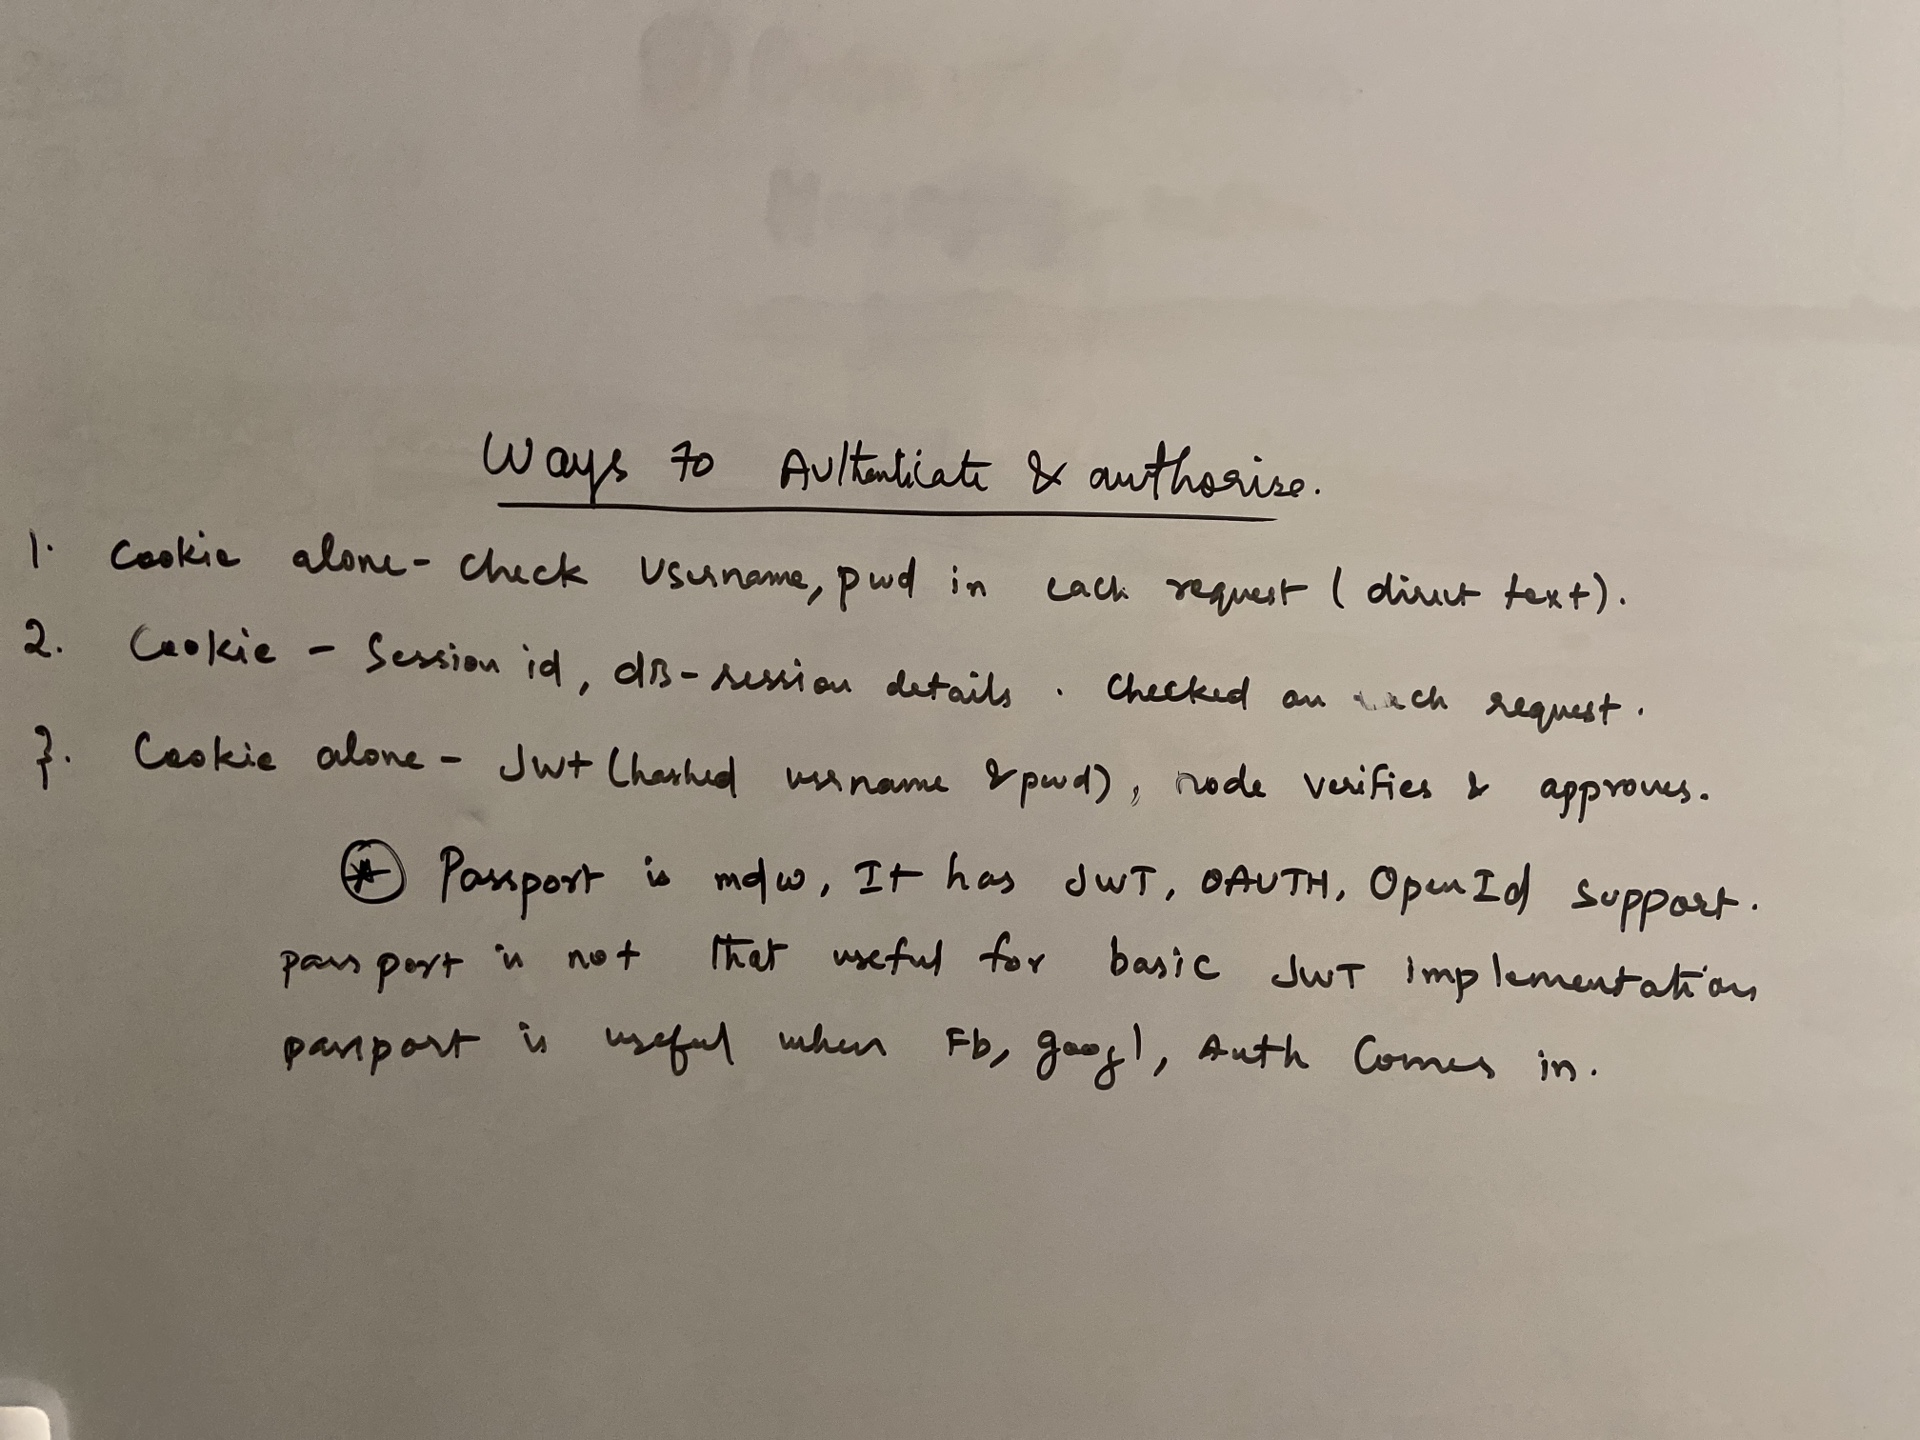 Ways to Authenticate & authorise.
1. Cookie alone - Check Username, pwd in each request (direct text).
2. Cookie - Session id, dB - session details. Checked on each request.
3. Cookie alone - Jwt (hashed usrname & pwd), node verifies & approves.
* Passport is mdw, It has JWT, OAUTH, OpenId support.
passport is not that useful for basic JWT implementation
passport is useful when Fb, googl, Auth Comes in.